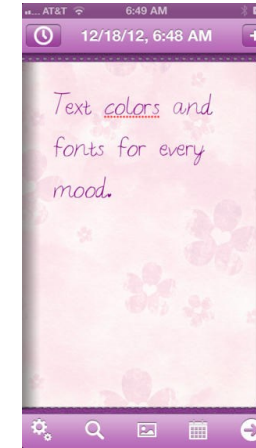 AT&T 6:49 AM
12/18/12, 6:48 AM +
Text colors and
fonts for every
mood.